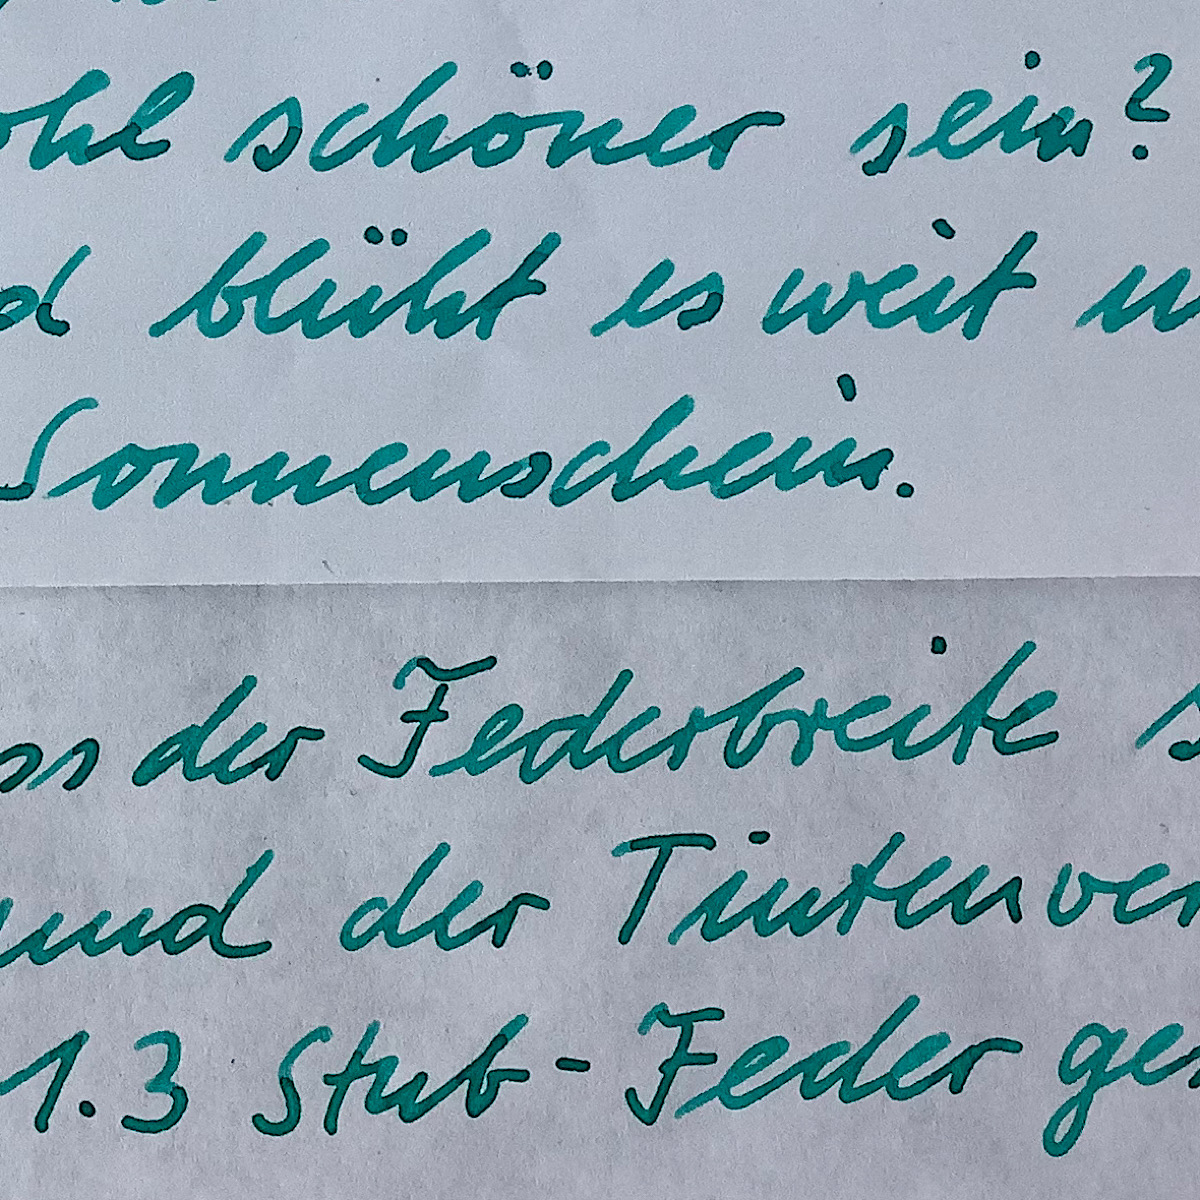 schöner sein?
blüht es weit
Sonnenschein.
der Federbreite
und der Tintenver
1.3 Stub-Feder ges